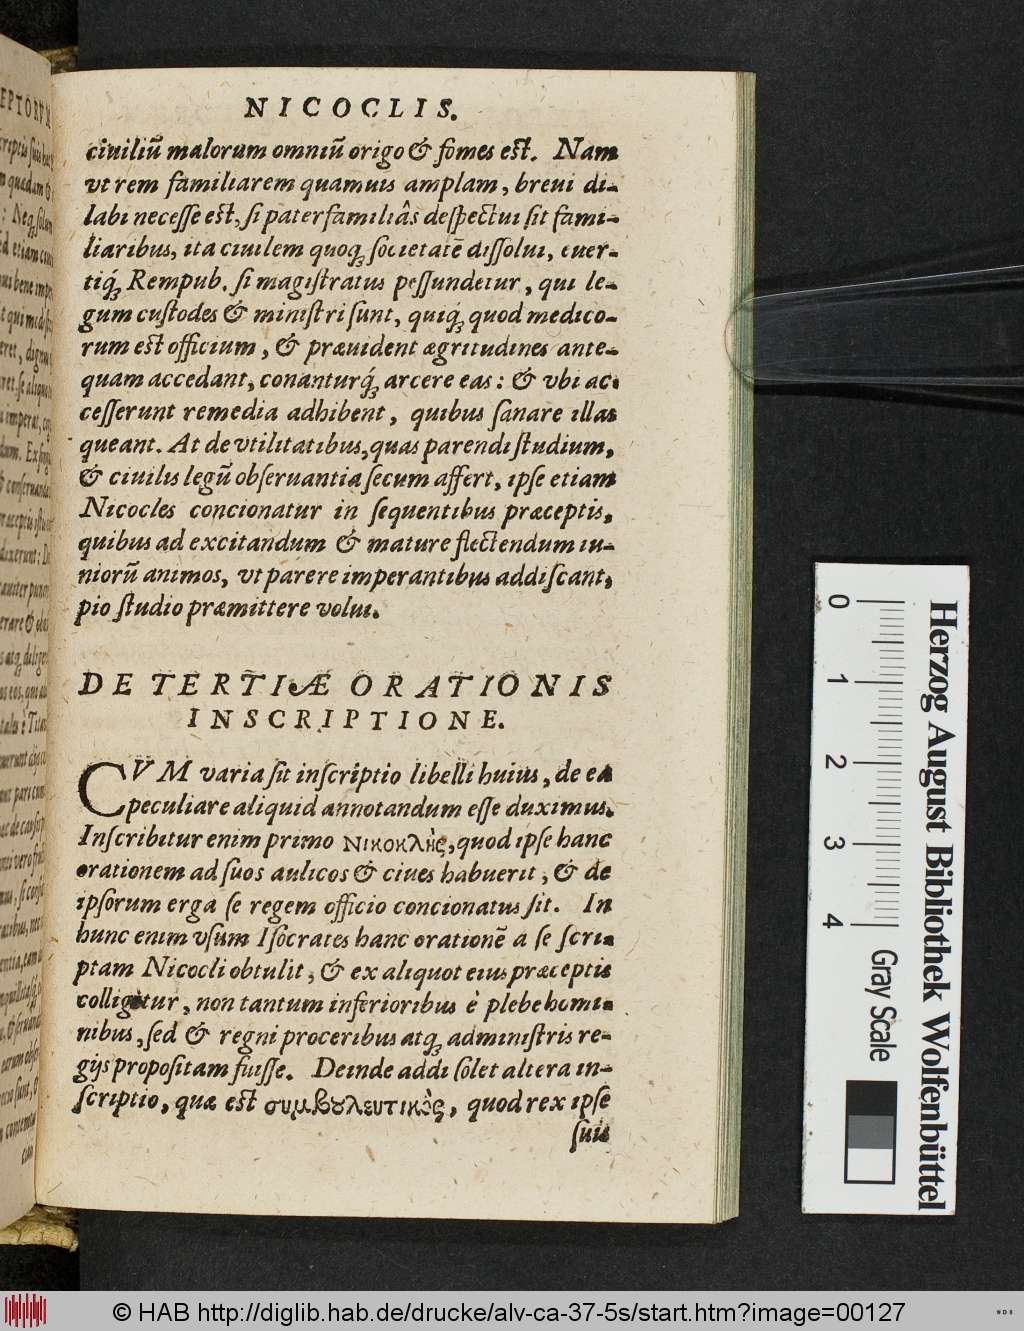 NICOCLIS.
ciuiliū malorum omniū origo & fomes est. Nam
vt rem familiarem quamuis amplam, breui di-
labi necesse est, si paterfamiliâs despectui sit fami-
liaribus, ita ciuilem quoq; societatē dissolui, euer-
tiq́; Rempub. si magistratus pessundetur, qui le-
gum custodes & ministri sunt, quiq́; quod medico-
rum est officium, & præuident ægritudines ante-
quam accedant, conanturq́; arcere eas: & vbi ac-
cesserunt remedia adhibent, quibus sanare illas
queant. At de vtilitatibus, quas parendi studium,
& ciuilis legū obseruantia secum affert, ipse etiam
Nicocles concionatur in sequentibus præceptis,
quibus ad excitandum & mature flectendum iu-
niorū animos, vt parere imperantibus addiscant,
pio studio præmittere volui.
DE TERTIÆ ORATIONIS
INSCRIPTIONE.
CVM varia sit inscriptio libelli huius, de ea
peculiare aliquid annotandum esse duximus.
Inscribitur enim primo Νικοκλὴς, quod ipse hanc
orationem ad suos aulicos & ciues habuerit, & de
ipsorum erga se regem officio concionatus sit. In
hunc enim vsum Isocrates hanc orationē a se scri-
ptam Nicocli obtulit, & ex aliquot eius præceptis
colligitur, non tantum inferioribus è plebe homi-
nibus, sed & regni proceribus atq; administris re-
gijs propositam fuisse. Deinde addi solet altera in-
scriptio, quæ est συμβουλευτικὸς, quod rex ipse
suis
0 1 2 3 4
Gray Scale
Herzog August Bibliothek Wolfenbüttel
© HAB http://diglib.hab.de/drucke/alv-ca-37-5s/start.htm?image=00127